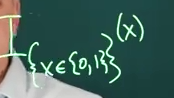 I_{{x∈{0,1}}}(x)